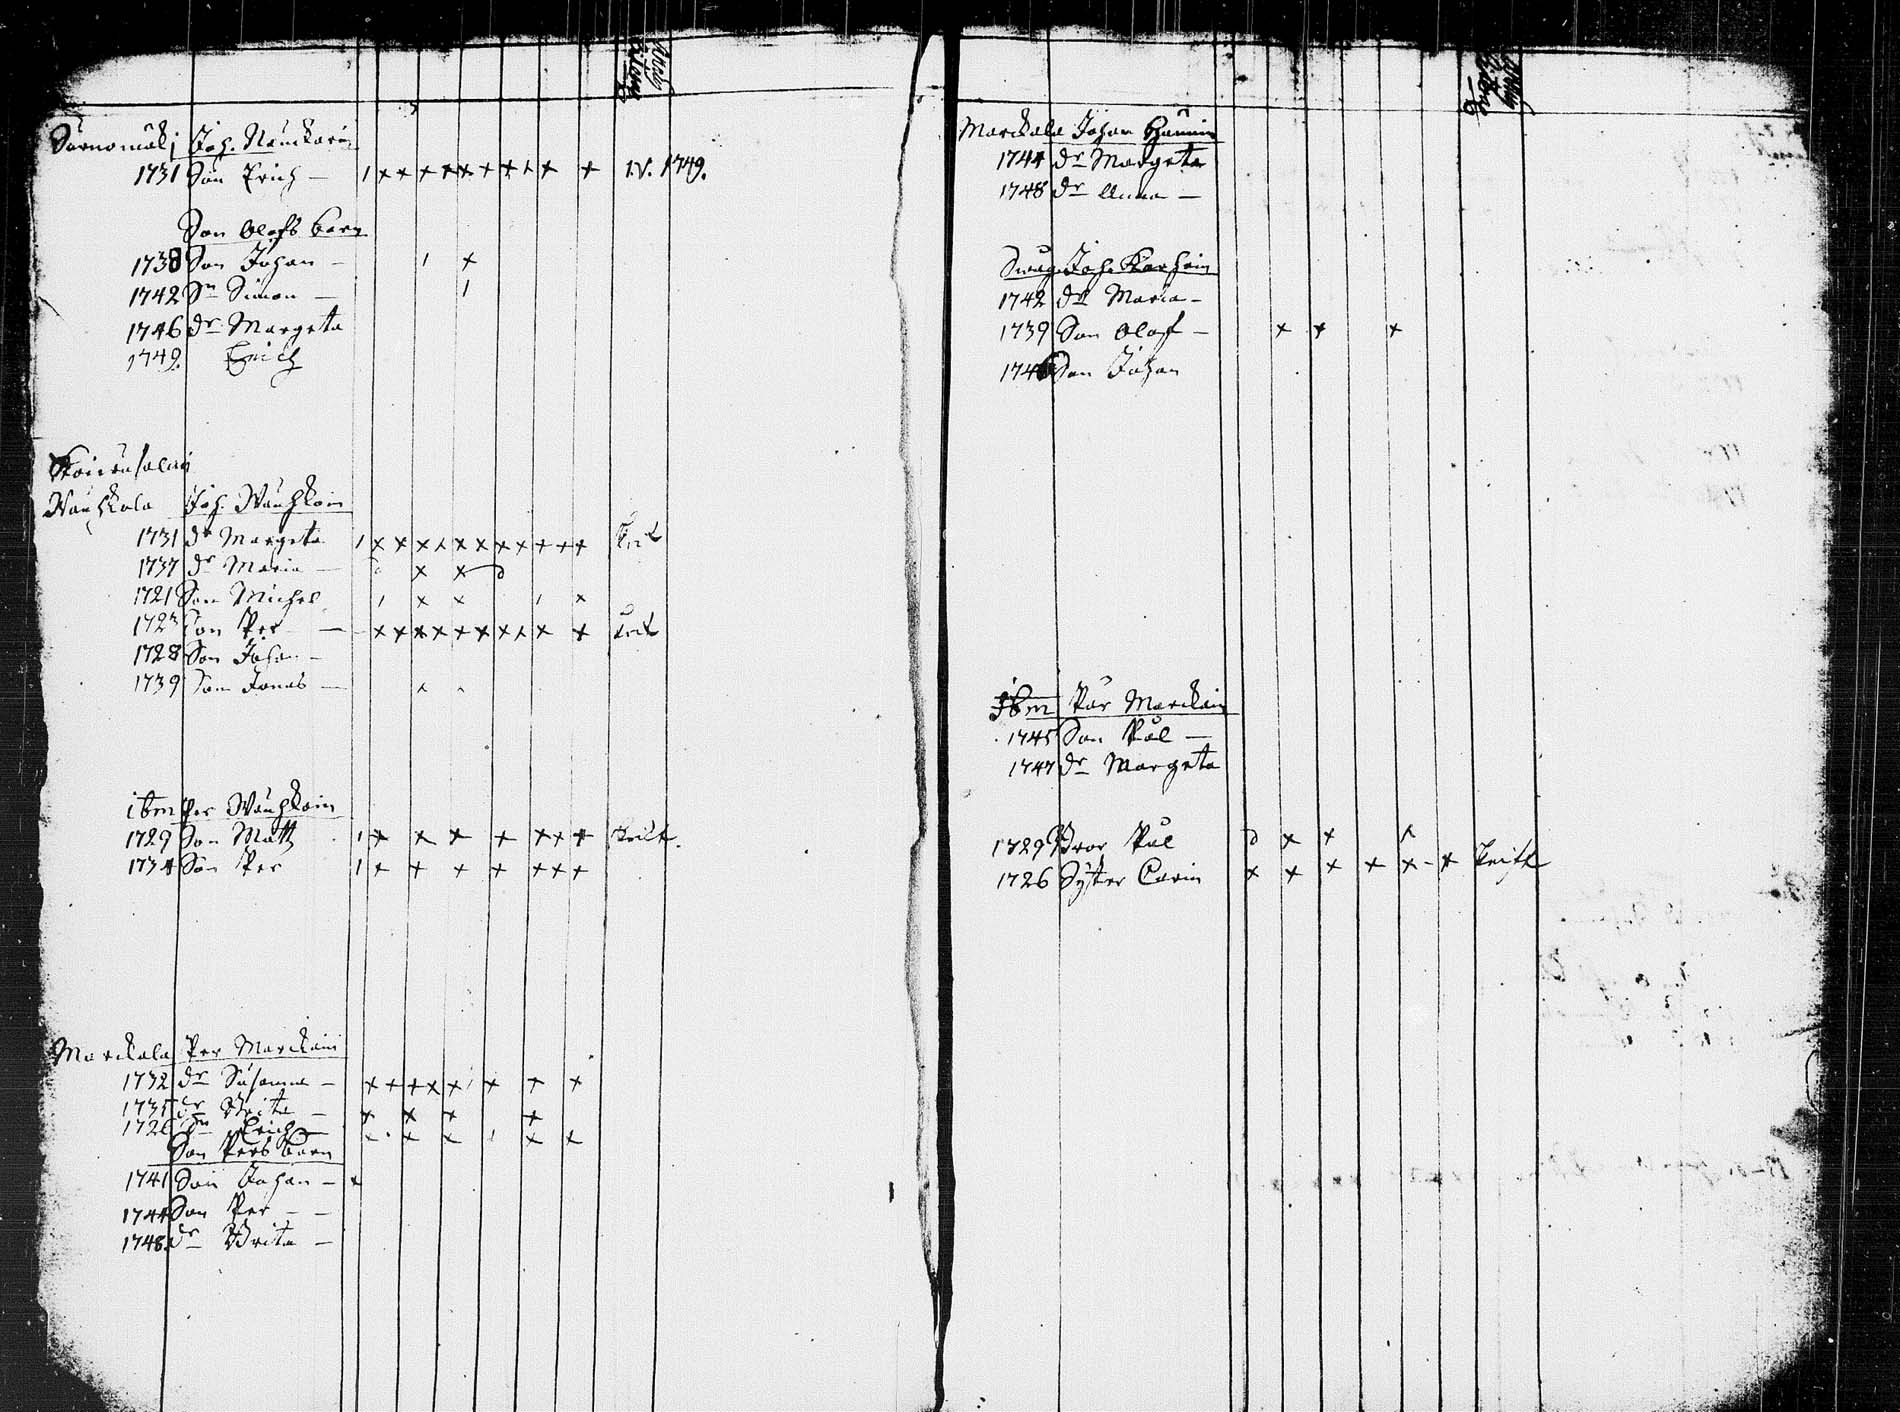 Joh. Nauckarin
1731 Son Erich – 1 x x x x x x x x x x 1.V. 1749.
Son Olofs barn
1738 Son Johan – 1 x
1742 Sn Simon – 1
1746 dr Margeta
1749. Erich
Wauhkola Joh. Wauhkoin
1731 dr Margeta 1 x x x x x x x x x x x
1737 dr Maria – x x
1721 Son Michel 1 x x 1 x
1723 Son Per – x x x x x x x x x x
1728 Son Johan –
1739 Son Jonas – x
ibm Per Wauhkoin
1729 Son Matts 1 x x x x x x x
1734 Son Per 1 x x x x x x x
Marckala Per Marckain
1732 dr Susanna – x x x x x 1 x x x
1735 dr Brita – x x x x
1726 Sn Erich – x x x 1 x x
Son Pers barn
1741 Son Johan – x
1744 Son Per – –
1748. dr Brita –
Marckala Johan
1744 dr Margeta
1748 dr Anna –
Swåg. Joh. Karhain
1742 dr Maria –
1739 Son Olof – x x x
Son Johan
Ibm Pär Marckain
1745 Son Pål –
1747 dr Margeta
1729 Bror Pål x x x
1726 Syster Carin x x x x x – x